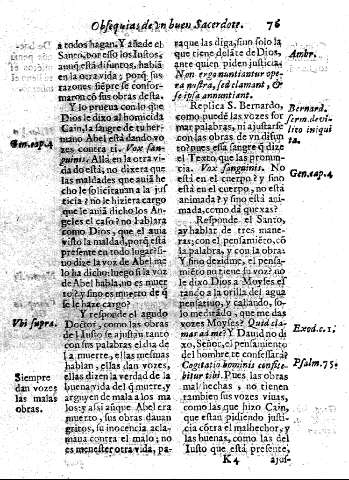 Obsequias de vn buen Sacerdote. 76
a todos hagan. Y añade el
Santo, por esso los Iustos,
aunq̃ està difuntos, habla
en la otra vida; porq̃ sus
razones siẽpre se confor-
maron cõ sus obras desta.
Y lo prueua con lo que
Dios le dixo al homicida
Cain, la sangre de tu her-
mano Abel està dando vo
zes contra ti. Vox san-
guinis. Allà en la otra vi-
da està, no dixera que
las maldades que auiã he
cho le solicitauan a la jus
ticia? no le hiziera cargo
que le auiã dicho los An-
geles el caso? no hablara
como Dios, que el auia
visto la maldad, porq̃ està
presente en todo lugar? si-
no dize la voz de Abel me
lo ha dicho: luego si la voz
de Abel habla, no es muer
to? y si no es muerto de q̃
se le haze cargo?
Y responde el agudo
Doctor, como las obras
del Iusto se ajustan tanto
con sus palabras el dia de
la muerte, ellas mesmas
hablan, ellas dan vozes,
ellas dizen la verdad de la
buena vida del q̃ muere, y
arguyen de mala a los ma
los: y assi aũque Abel era
muerto, sus obras dauan
gritos, su inocencia acla-
maua contra el malo; no
es menester otra vida, pa-
Gen. cap. 4
Vbi supra.
Siempre
dan vozes
las malas
obras.
raque las diga, sino solo la
que tiene delãte de Dios,
ante quien piden justicia.
Non ergo nuntiantur ope
ra nostra, sed clamant, &
se ipsa annuntient.
Replica S. Bernardo,
como puede las vozes for
mar palabras, ni ajustarse
con las obras de vn difun
to? pues està sangre q̃ dize
el Texto, que las pronun-
cia. Vox sanguinis. No
està en el cuerpo? y si no
està en el cuerpo, no està
animada? y si no està ani-
mada, como dà quexas?
Responde el Santo,
ay hablar de tres mane-
ras; con el pensamiẽto, cõ
la palabra, y con la obra:
Y sino dezidme, el pensa-
miento no tiene su voz? no
le dixo Dios a Moyses es
tando a la orilla del agua
pensatiuo, y callando, so-
lo meditado, que me das
vozes Moyses? Quid cla-
mas ad me? Y Dauid no di
xo, Señor, el pensamiento
del hombre te confessarà?
Cogitatio hominis confite-
bitur tibi. Pues las obras
mal hechas, no tienen
tambien sus vozes viuas,
como las que hizo Cain,
que estan pidiendo justi-
cia cõtra el malhechor, y
las buenas, como las del
Iusto que està presente,
K 4 ajus-
Ambr.
Bernard.
serm. de vi-
lito iniqui
ta.
Gen. cap. 4
Exod. c. 1.
Psalm. 75.